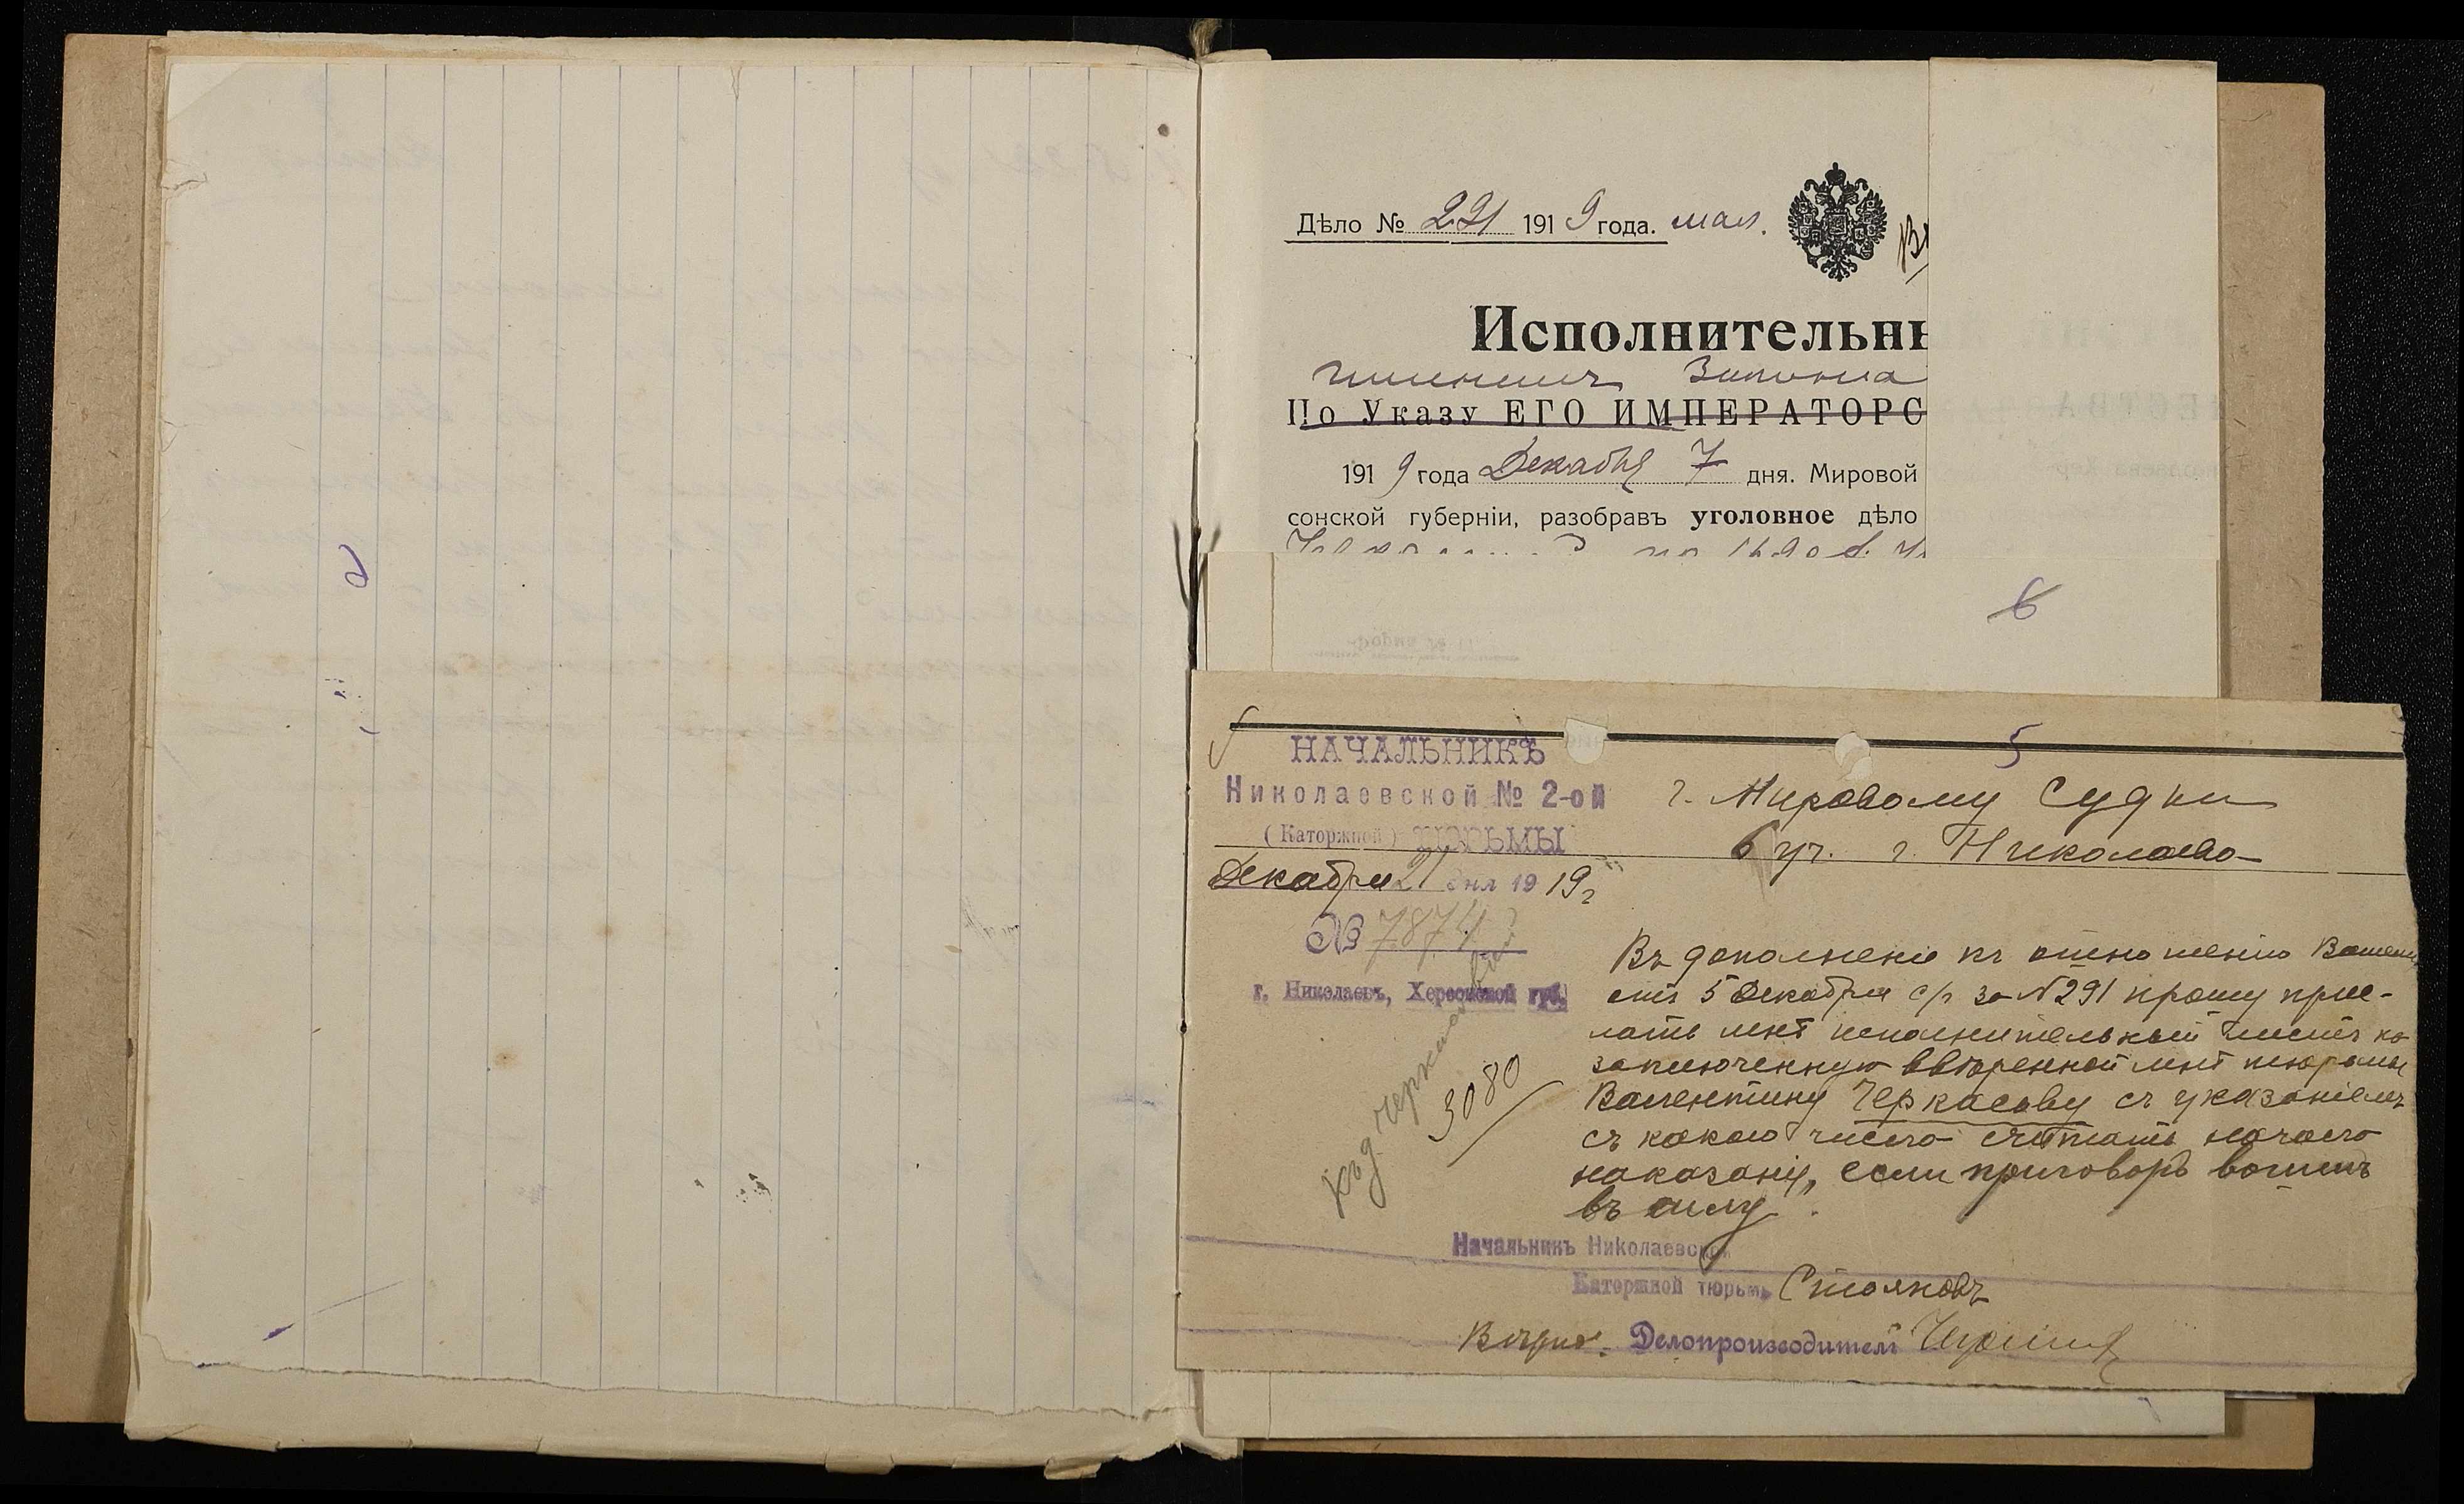 Дѣло № 291 1919 года. мая.
Исполнительн
именемъ Закона
По Указу ЕГО ИМПЕРАТОРС
1919 года Декабря 7 дня. Мировой
сонской губерніи, разобравъ уголовное дѣло
6
5
НАЧАЛЬНИКЪ
Николаевской № 2-ой
(Каторжной) ТЮРЬМЫ
Декабря 21 дня 1919 г
№ 7874
г. Николаевъ, Херсонской губ.
г. Мировому Судьи
6 уч. г. Николаева
Въ дополненіе къ отношенію Вашему
отъ 5 Декабря с/г за № 291 прошу прис-
лать мнѣ исполнительный листъ на
заключенную ввѣренной мнѣ тюрьмы
Валентину Черкасову съ указаніемъ
съ какого числа считать начало
наказанія, если приговоръ вошелъ
въ силу.
3080
Начальникъ Николаевской
Каторжной тюрьмы Стояновъ
Делопроизводитель